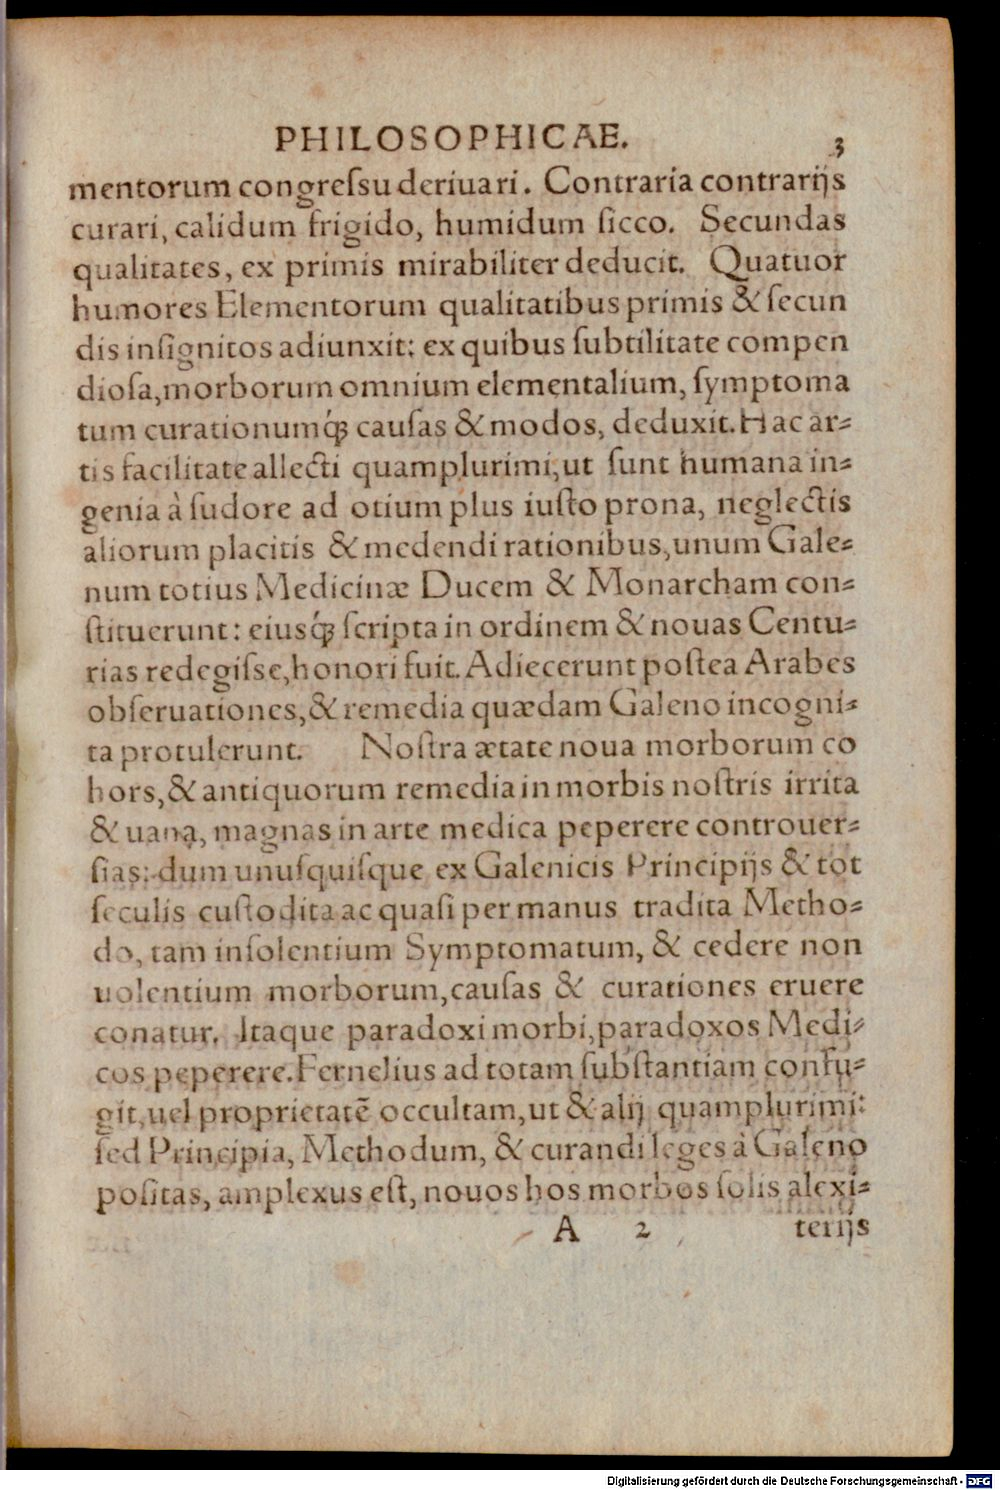 PHILOSOPHICAE. 3
mentorum congreſsu deriuari. Contraria contrarijs
curari, calidum frigido, humidum ſicco. Secundas
qualitates, ex primis mirabiliter deducit. Quatuor
humores Elementorum qualitatibus primis & ſecun
dis inſignitos adiunxit: ex quibus ſubtilitate compen
dioſa, morborum omnium elementalium, ſymptoma
tum curationumq́ꝫ cauſas & modos, deduxit. Hac ar-
tis facilitate allecti quamplurimi, ut ſunt humana in-
genia à ſudore ad otium plus iuſto prona, neglectis
aliorum placitis & medendi rationibus, unum Gale-
num totius Medicinæ Ducem & Monarcham con-
ſtituerunt: eiusq́ꝫ ſcripta in ordinem & nouas Centu-
rias redegiſse, honori fuit. Adiecerunt poſtea Arabes
obſeruationes, & remedia quædam Galeno incogni-
ta protulerunt. Noſtra ætate noua morborum co
hors, & antiquorum remedia in morbis noſtris irrita
& uana, magnas in arte medica peperere controuer-
ſias: dum unuſquiſque ex Galenicis Principijs & tot
ſeculis cuſtodita ac quaſi per manus tradita Metho-
do, tam inſolentium Symptomatum, & cedere non
uolentium morborum, cauſas & curationes eruere
conatur. Itaque paradoxi morbi, paradoxos Medi-
cos peperere. Fernelius ad totam ſubſtantiam confu-
git, uel proprietatē occultam, ut & alij quamplurimi:
ſed Principia, Methodum, & curandi leges à Galeno
poſitas, amplexus eſt, nouos hos morbos ſolis alexi-
A 2 terijs
Digitalisierung gefördert durch die Deutsche Forschungsgemeinschaft - DFG